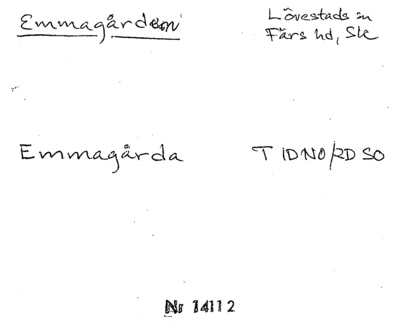 Emmagården
Lövestads sn
Färs hd, Sk
Emmagårda
T IDNO/RD SO
Nr 14112